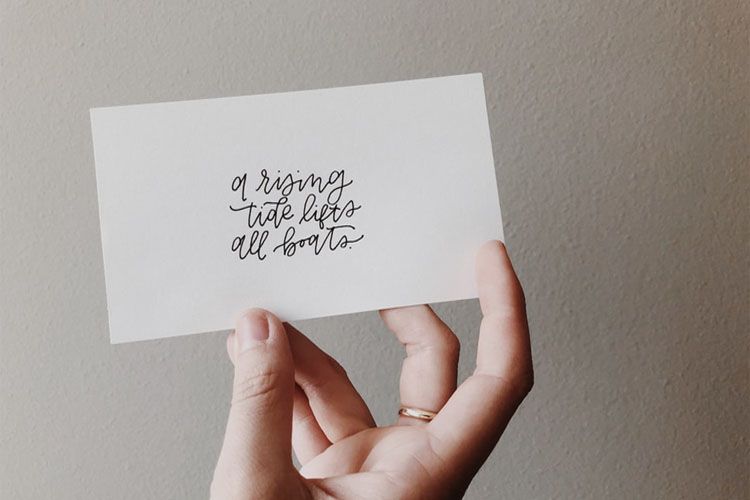 a rising
tide lifts
all boats.